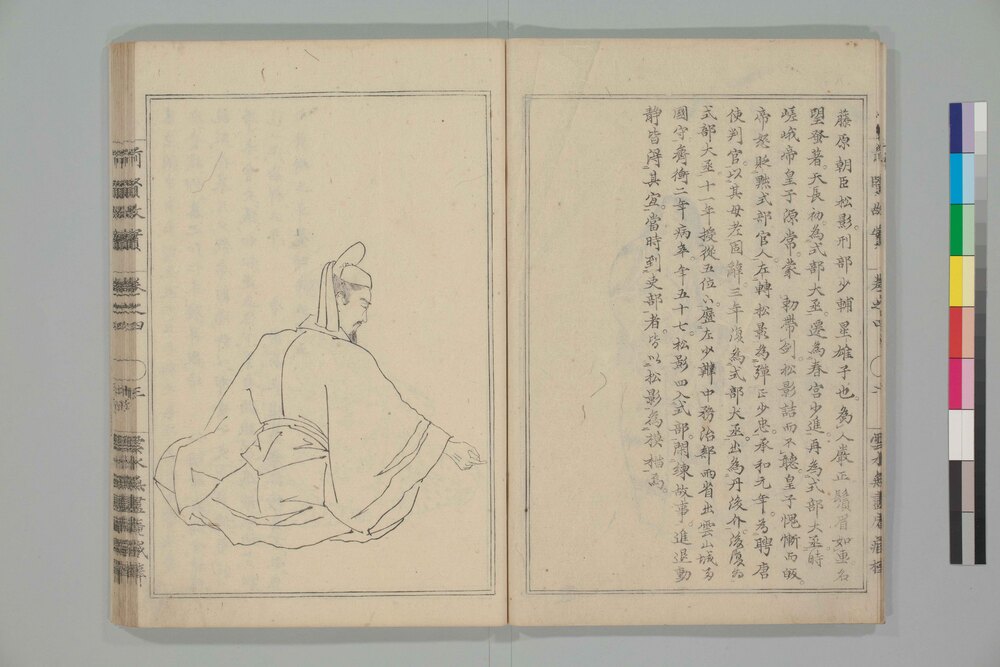 藤原朝臣松影刑部少輔星雄子也為人嚴正鬚眉如畫名
望發著天長初為式部大丞遷為春宮少進再為式部大丞時
嵯峨帝皇子源常蒙勅帶剣松影詰而不聽皇子愧慚而皈
帝怒貶黜式部官人左轉松影為彈正少忠承和元年為聘唐
使判官以其母老固辭三年復為式部大丞出為丹後介後復為
式部大丞十一年授從五位下歷左少辨中務治部兩省出雲山城為
國守齊衡二年病卒年五十七松影四入式部閑練故事進退動
靜皆得其宜當時到吏部者皆以松影為模楷焉
前賢故實 卷之四